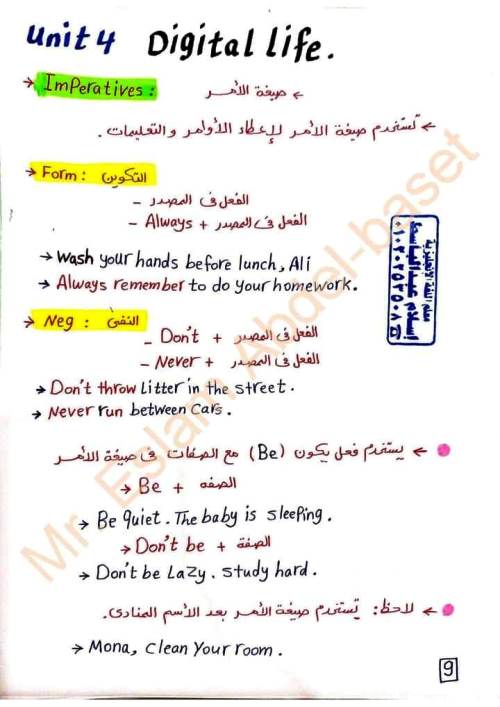 Unit 4 Digital life.
→ Imperatives : ← صيغة الأمر
← تستخدم صيغة الأمر لإعطاء الأوامر والتعليمات.
→ Form : التكوين
– الفعل فى المصدر
– Always + الفعل فى المصدر
→ Wash your hands before lunch, Ali
→ Always remember to do your homework.
→ Neg : النفى
– Don't + الفعل فى المصدر
– Never + الفعل فى المصدر
→ Don't throw Litter in the street.
→ Never run between cars.
← يستخدم فعل يكون (Be) مع الصفات فى صيغة الأمر
→ Be + الصفه
→ Be quiet. The baby is sleeping.
→ Don't be + الصفة
→ Don't be Lazy. study hard.
← لاحظ: تستخدم صيغة الأمر بعد الأسم المنادى.
→ Mona, clean Your room.
9
معلم اللغة الإنجليزية
إسلام عبدالباسط
Mr. Eslam Abdel-baset